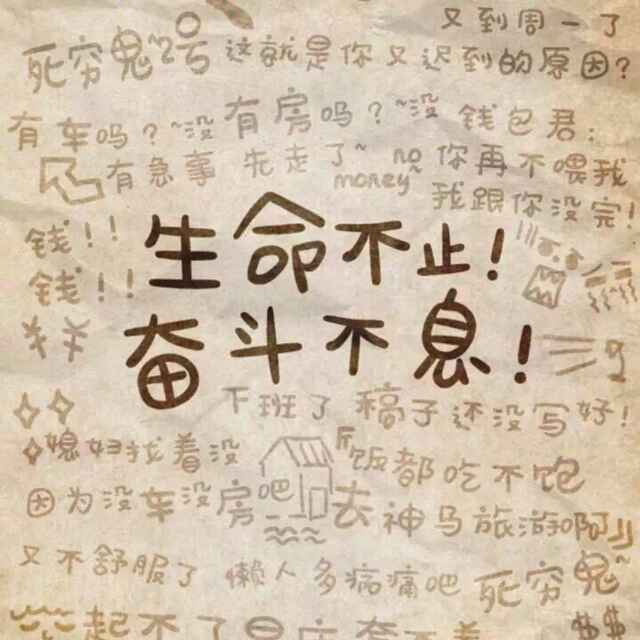 又到周一了
死穷鬼~2号 这就是你又迟到的原因?
有车吗?~没有房吗?~没 钱包君:
有急事 先走了~ no money 你再不喂我
我跟你没完!
钱!! 生命不止!
钱!!
¥¥ 奋斗不息!
下班了 稿子还没写好!
媳妇找着没 饭都吃不饱
因为没车没房吧 去神马旅游啊!!
又不舒服了 懒人多病痛吧 死穷鬼~
起不了 $$